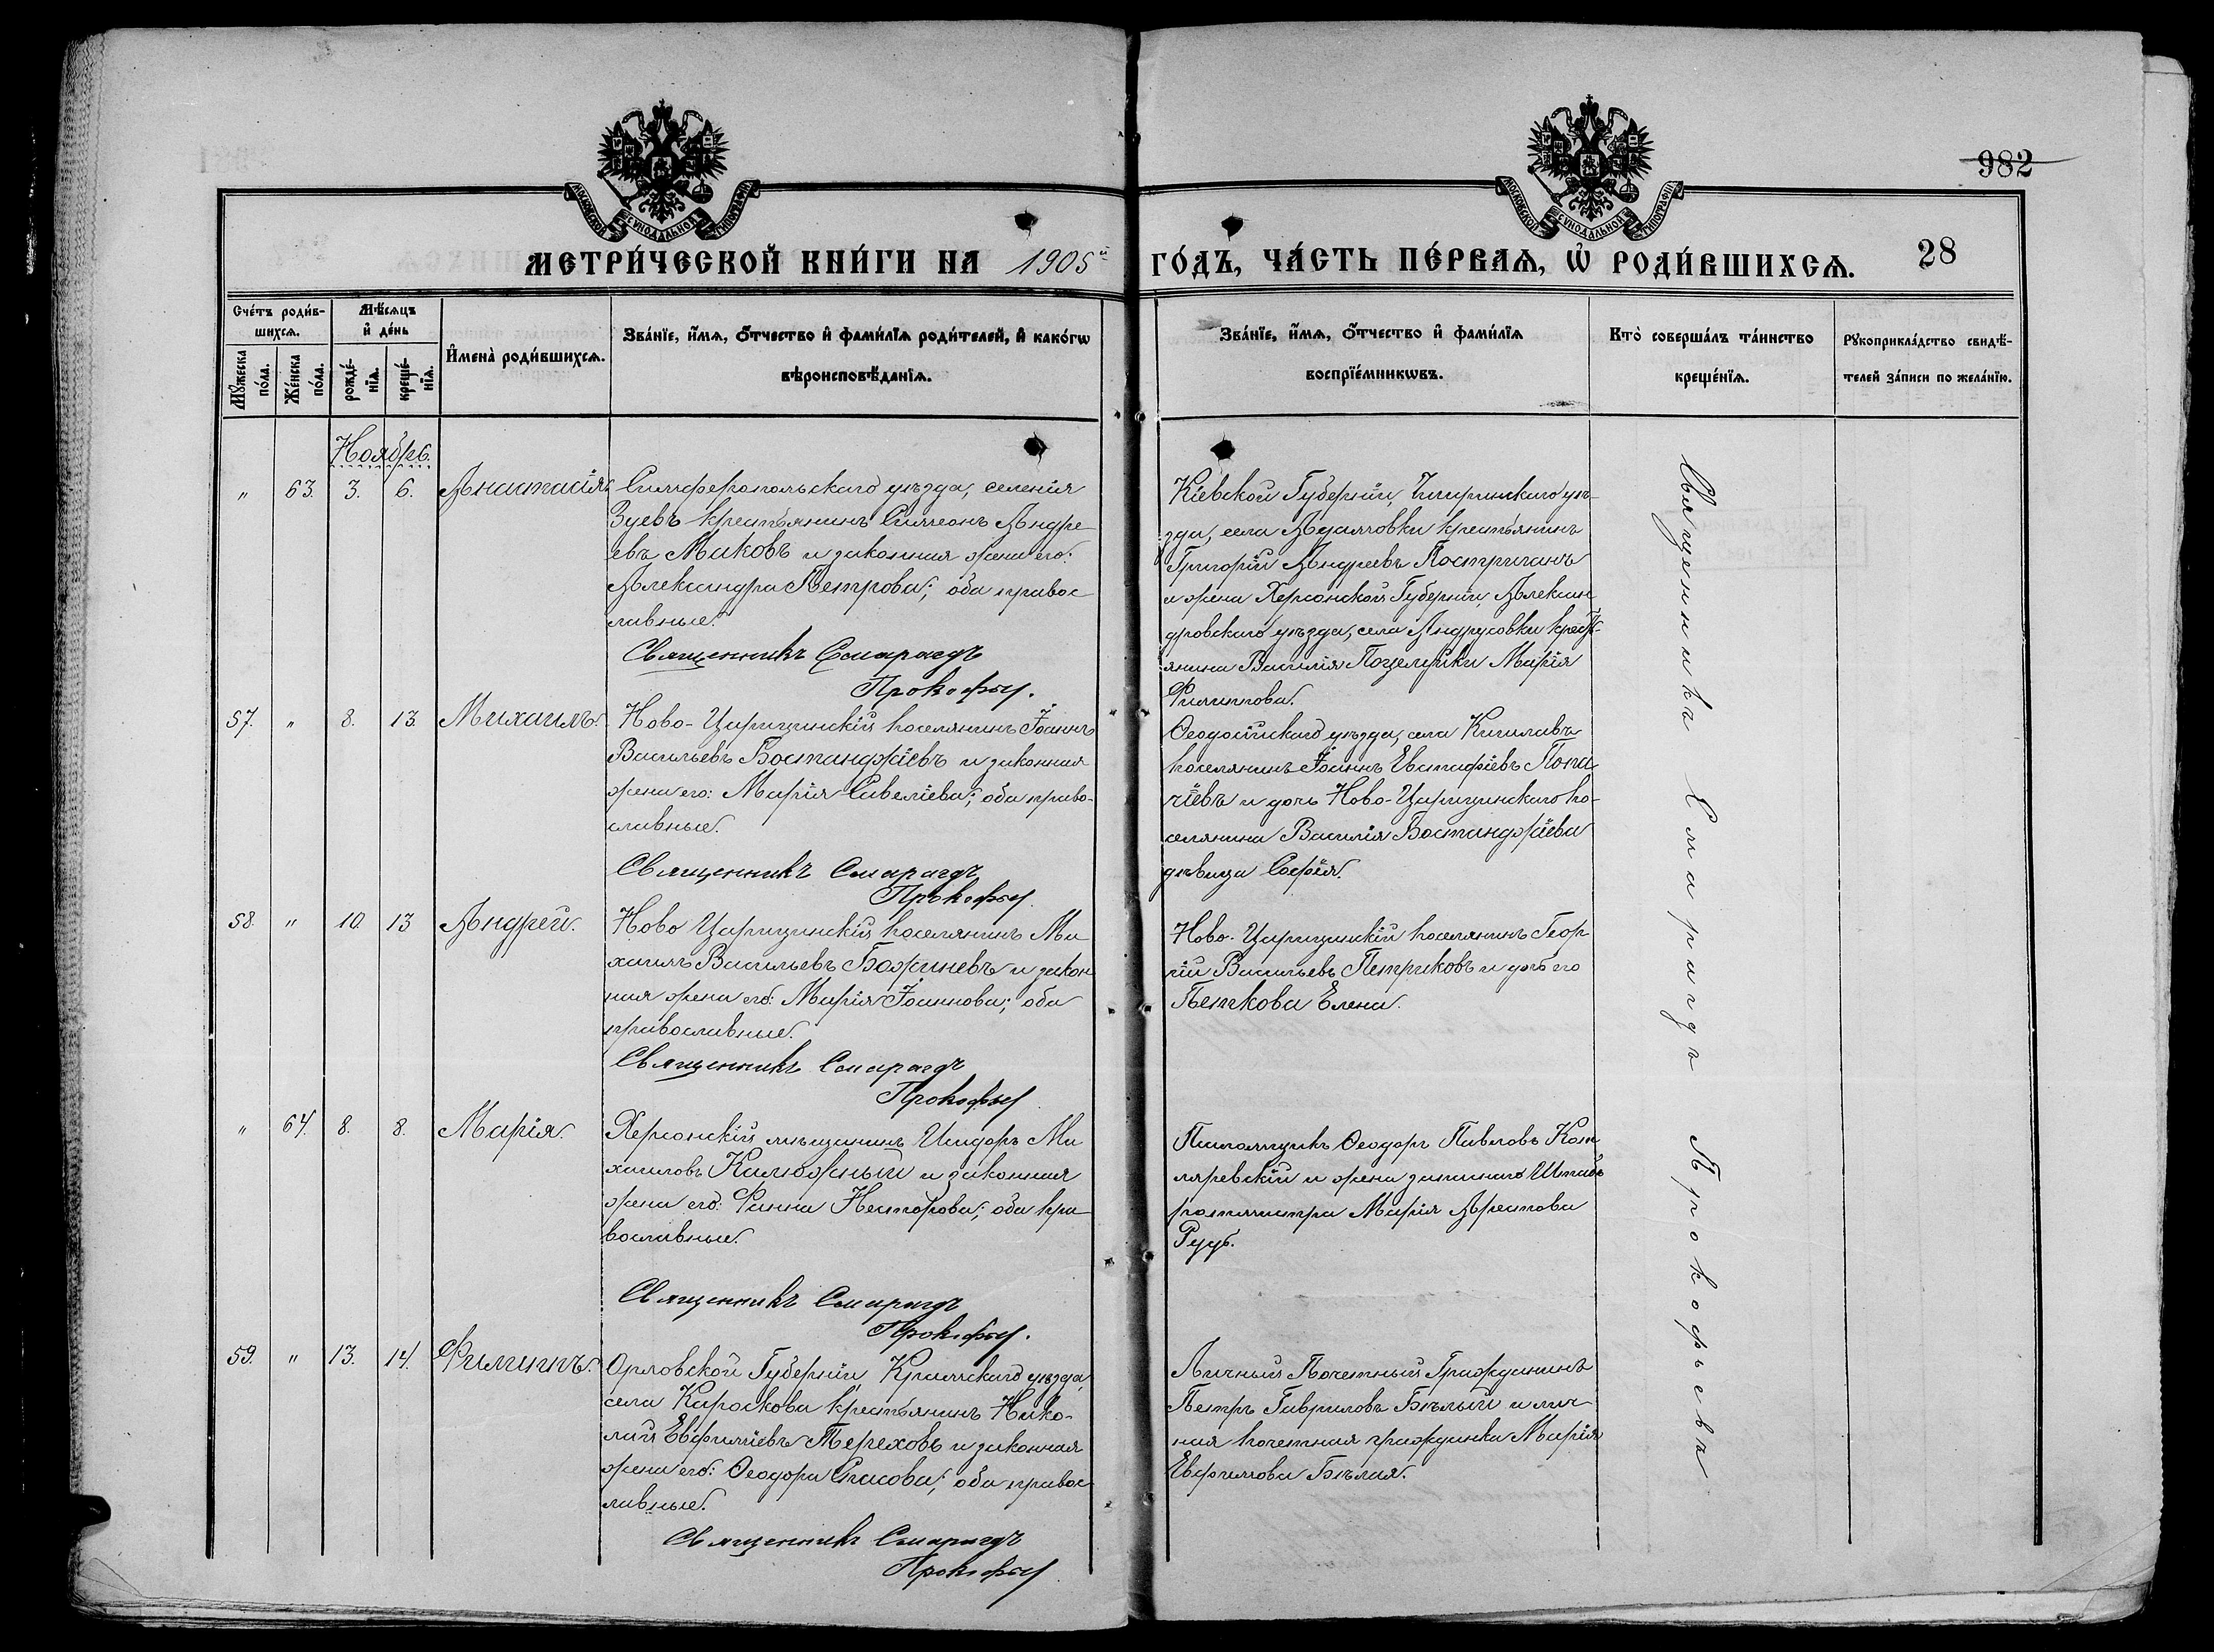 982
МОСКОВСКОЙ СѴНОДАЛЬНОЙ ТИПОГРАФІИ
МОСКОВСКОЙ СѴНОДАЛЬНОЙ ТИПОГРАФІИ
МЕТРИ́ЧЕСКОЙ КНИ́ГИ НА 1905й ГО́ДЪ, ЧА́СТЬ ПЕ́РВАѦ, Ѡ҆ РОДИ́ВШИХСѦ. 28
Сче́тъ роди́в-
шихсѧ.
Мꙋжеска по́ла.
Же́нска по́ла.
Мѣ́сѧцъ
и҆ де́нь
рожде́-нїѧ.
креще́-нїѧ.
И҆мена̀ роди́вшихсѧ.
Зва́нїе, и҆́мѧ, ѻ҆́тчество и҆ фами́лїѧ роди́телей, и҆ како́гѡ
вѣроисповѣ́данїѧ.
Зва́нїе, и҆́мѧ, ѻ҆́тчество и҆ фами́лїѧ
воспрїе́мникѡвъ.
Кто̀ соверша́лъ та́инство
креще́нїѧ.
Рꙋкоприкла́дство свидѣ́-
телей за́писи по жела́нїю.
Ноябрь.
" 63. 3. 6. Анастасія
Симферопольскаго уѣзда, селенія
Зуевъ крестьянинъ Симеонъ Андре-
евъ Маковъ и законная жена его:
Александра Петрова; оба правос
лавные.
Священникъ Смарагдъ
Прокофьев.
Кіевской Губерніи, Чигиринскаго уѣ-
зда, села Адамовки крестьянинъ
Григорій Андреевъ Постриганъ
и жена Херсонской Губерніи, Алексан
дровскаго уѣзда, села Андрусовки крест-
янина Василія Поцелуйки Марія
Филиппова.
57. " 8. 13. Михаилъ.
Ново-Царицинскій поселянинъ Іоаннъ
Васильевъ Бостанджіевъ и законная
жена его: Марія Савеліева; оба право-
славные.
Священникъ Смарагдъ
Прокофьев.
Ѳеодосійскаго уѣзда, села Кишлавъ
поселянинъ Іоаннъ Евстафіевъ
и дочь Ново-Царицинскаго по-
селянина Василія Бостанджіева
дѣвица Софія.
58. " 10. 13 Андрей.
Ново Царицинскій поселянинъ Ми
хаилъ Васильевъ Божиневъ и закон
ная жена его: Марія Іоаннова; оба
православные.
Священникъ Смарагдъ
Прокофьев
Ново-Царицинскій поселянинъ Геор
гій Васильевъ Петриковъ и дочь его
Петкова Елена.
" 64. 8. 8. Марія.
Херсонскій мѣщанинъ Исидоръ Ми
хаиловъ Калюжный и законная
жена его: Фаина Несторова; оба пра
вославные.
Священникъ Смарагдъ
Прокофьев.
Псаломщикъ Ѳеодоръ Павловъ Кот
ляревскій и жена запаснаго Штабъ
ротмистра Марія Арестова
Рудь.
59. " 13. 14. Филиппъ.
Орловской Губерніи, Кромскаго уѣзда,
села Кароскова крестьянинъ Нико-
лай Евфиміевъ Тереховъ и законная
жена его: Ѳеодора Спасова; оба правос
лавные.
Священникъ Смарагдъ
Прокофьев
Личный Почетный Гражданинъ
Петръ Гавриловъ Бѣлый и лич
ная почетная гражданка Марія
Евфимова Бѣлая.
Священникъ Смарагдъ Прокофьевъ